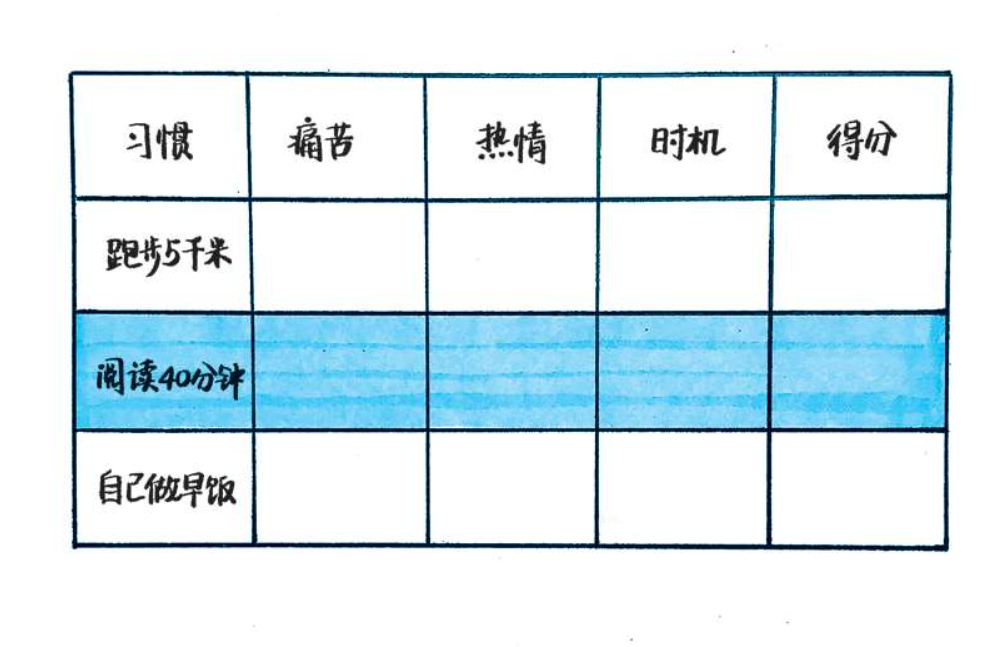 习惯 痛苦 热情 时机 得分
跑步5千米
阅读40分钟
自己做早饭